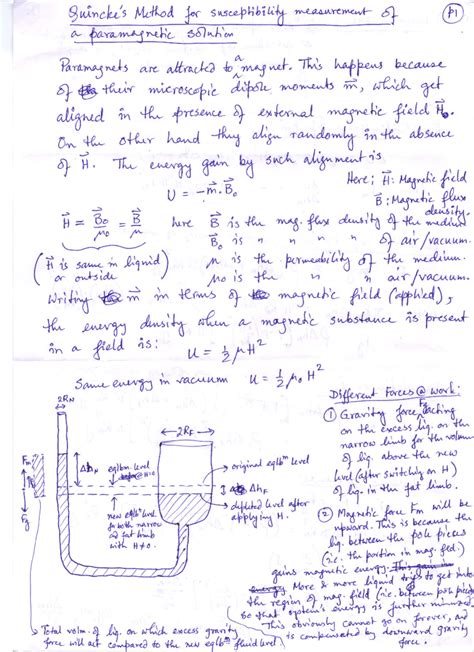 Quincke's Method for susceptibility measurement of
a paramagnetic solution
P1
Paramagnets are attracted to a magnet. This happens because
of their microscopic dipole moments m, which get
aligned in the presence of external magnetic field H₀.
On the other hand they align randomly in the absence
of H. The energy gain by such alignment is
U = -m.B₀
Here; H: Magnetic field
B: Magnetic flux
density.
H = B₀/μ₀ = B/μ
here B is the mag. flux density of the medium
B₀ is " " " " of air/vacuum.
(H is same in liquid
or outside)
μ is the permeability of the medium.
μ₀ is the " " air/vacuum.
Writing m in terms of magnetic field (applied),
the energy density when a magnetic substance is present
in a field is:
u = ½ μH²
Same energy in vacuum u = ½ μ₀H²
2RN
Fm
Fg
ΔhN
eqlbm level
@ H=0
new eqlbm level
for both narrow
and fat limb
with H≠0.
2RF
original eqlbm level
ΔhF
depleted level after
applying H.
Different Forces @ work:
① Gravity force, Fg acting
on the excess liq. on the
narrow limb for the volume
of liq. above the new
level (after switching on H)
of liq. in the fat limb.
② Magnetic force Fm will be
upward. This is because the
liq. between the pole pieces
(i.e. the portion in mag. feld.)
gains magnetic energy.
More & more liquid try to get into
the region of mag. field (i.e. between pole pieces)
so that system's energy is further minimized.
This obviously cannot go on forever, and
is compensated by downward gravity
force.
Total volm. of liq. on which excess gravity
force will act compared to the new eqlbm fluid level